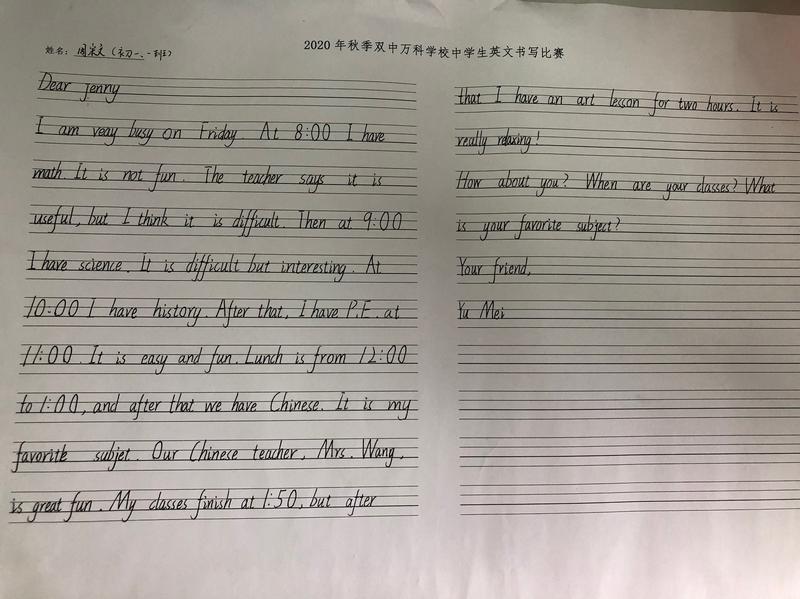 2020年秋季双中万科学校中学生英文书写比赛
姓名: 周 文(初一.一班)
Dear Jenny
I am veay busy on Friday. At 8:00 I have
math. It is not fun. The teacher says it is
useful, but I think it is difficult. Then at 9:00
I have science. It is difficult but interesting. At
10:00 I have history. After that, I have P.E. at
11:00. It is easy and fun. Lunch is from 12:00
to 1:00, and after that we have Chinese. It is my
favorite subjet. Our Chinese teacher, Mrs. Wang,
is great fun. My classes finish at 1:50, but after
that I have an art lesson for two hours. It is
really relaxing!
How about you? When are your classes? What
is your favorite subject?
Your friend,
Yu Mei